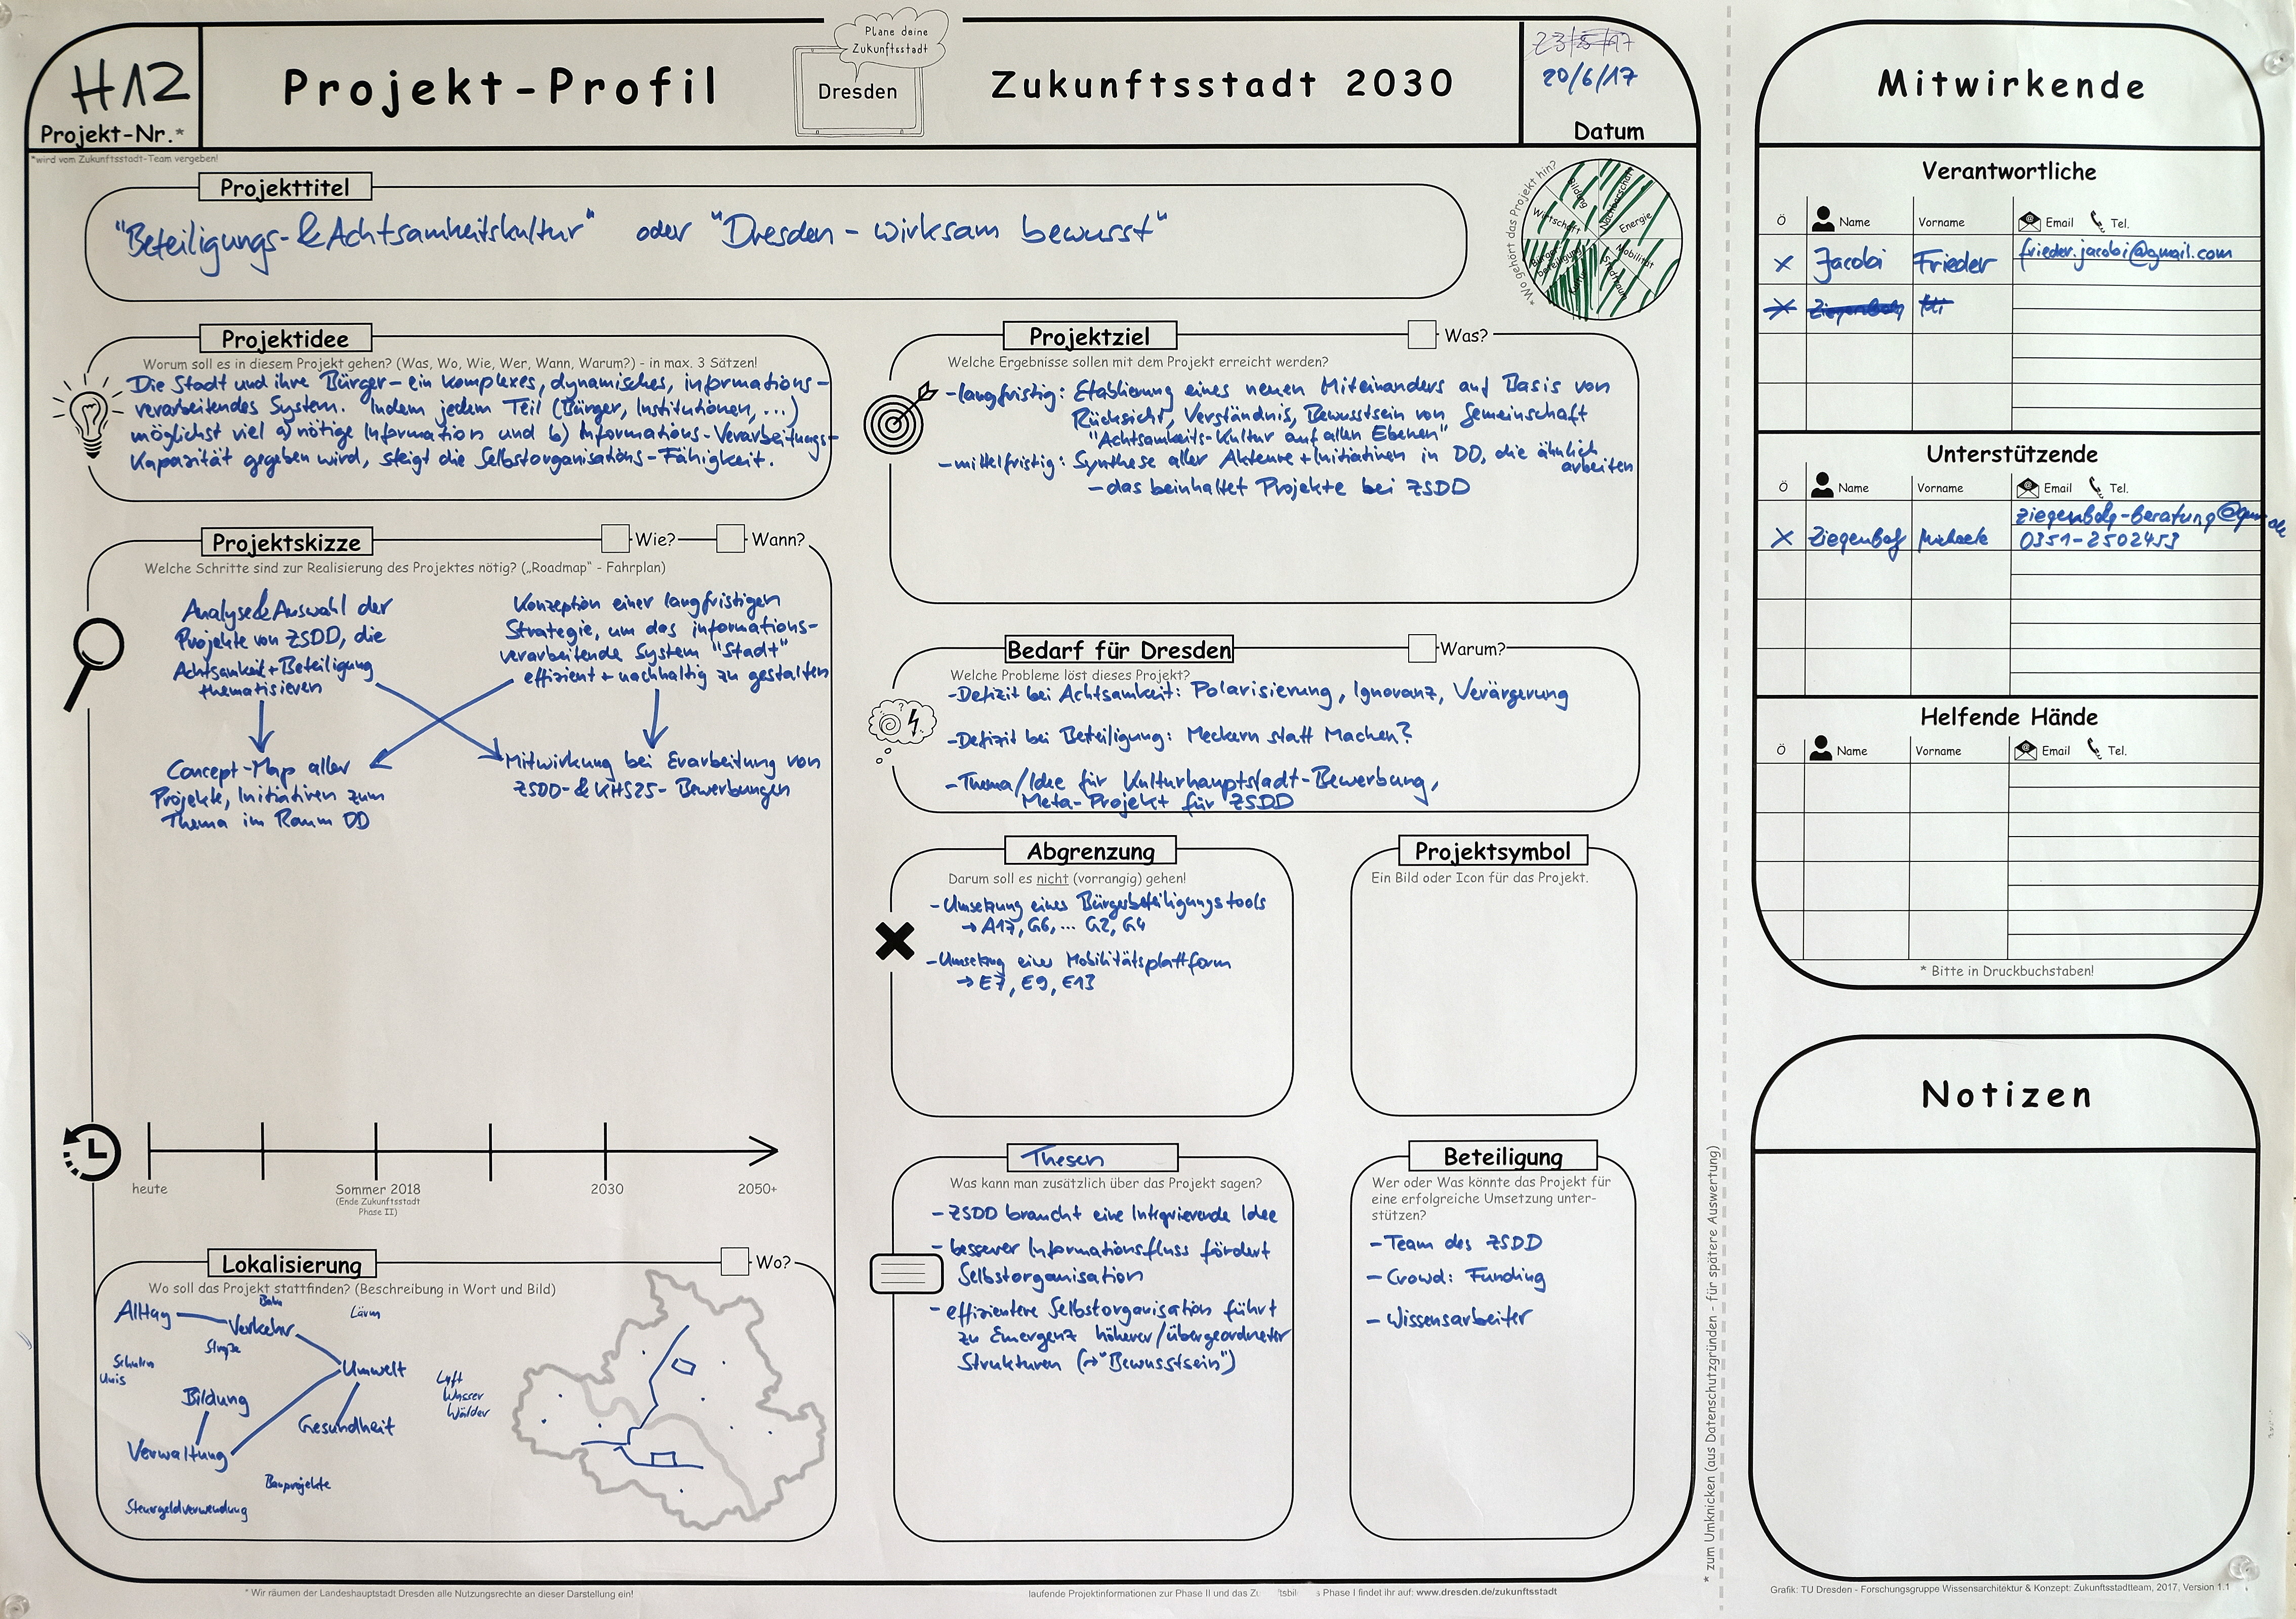 H12
Projekt-Nr.*
*wird vom Zukunftsstadt-Team vergeben!
Projekt-Profil
Plane deine
Zukunftsstadt
Dresden
Zukunftsstadt 2030
20/6/17
Datum
Projekttitel
"Beteiligungs- & Achtsamkeitskultur" oder "Dresden - wirksam bewusst"
*Wo gehört das Projekt hin?
Bildung
Nachbarschaft
Energie
Mobilität
Stadtraum
Kultur
Bürger-
beteiligung
Wirtschaft
Projektidee
Worum soll es in diesem Projekt gehen? (Was, Wo, Wie, Wer, Wann, Warum?) - in max. 3 Sätzen!
Die Stadt und ihre Bürger - ein komplexes, dynamisches, informations-
verarbeitendes System. Indem jedem Teil (Bürger, Institutionen, ...)
möglichst viel a) nötige Information und b) Informations-Verarbeitungs-
Kapazität gegeben wird, steigt die Selbstorganisations-Fähigkeit.
Projektskizze
Wie?
Wann?
Welche Schritte sind zur Realisierung des Projektes nötig? („Roadmap" - Fahrplan)
Analyse & Auswahl der
Projekte von ZSDD, die
Achtsamkeit + Beteiligung
thematisieren
Konzeption einer langfristigen
Strategie, um das informations-
verarbeitende System "Stadt"
effizient + nachhaltig zu gestalten
Concept-Map aller
Projekte, Initiativen zum
Thema im Raum DD
Mitwirkung bei Erarbeitung von
ZSDD- & KHS25- Bewerbungen
heute
Sommer 2018
(Ende Zukunftsstadt
Phase II)
2030
2050+
Lokalisierung
Wo?
Wo soll das Projekt stattfinden? (Beschreibung in Wort und Bild)
Alltag
Bahn
Verkehr
Lärm
Straße
Schulen
Unis
Umwelt
Luft
Wasser
Wälder
Bildung
Gesundheit
Verwaltung
Bauprojekte
Steuergeldverwendung
Projektziel
Was?
Welche Ergebnisse sollen mit dem Projekt erreicht werden?
- langfristig: Etablierung eines neuen Miteinanders auf Basis von
Rücksicht, Verständnis, Bewusstsein von Gemeinschaft
"Achtsamkeits-Kultur auf allen Ebenen"
- mittelfristig: Synthese aller Akteure + Initiativen in DD, die ähnlich
arbeiten
- das beinhaltet Projekte bei ZSDD
Bedarf für Dresden
Warum?
Welche Probleme löst dieses Projekt?
- Defizit bei Achtsamkeit: Polarisierung, Ignoranz, Verärgerung
- Defizit bei Beteiligung: Meckern statt Machen?
- Thema/Idee für Kulturhauptstadt-Bewerbung,
Meta-Projekt für ZSDD
Abgrenzung
Darum soll es nicht (vorrangig) gehen!
- Umsetzung eines Bürgerbeteiligungstools
→ A17, G6, ... G2, G4
- Umsetzung einer Mobilitätsplattform
→ E7, E9, E13
Projektsymbol
Ein Bild oder Icon für das Projekt.
Thesen
Was kann man zusätzlich über das Projekt sagen?
- ZSDD braucht eine Integrierende Idee
- besserer Informationsfluss fördert
Selbstorganisation
- effizientere Selbstorganisation führt
zu Emergenz höherer/übergeordneter
Strukturen (→ "Bewusstsein")
Beteiligung
Wer oder Was könnte das Projekt für
eine erfolgreiche Umsetzung unter-
stützen?
- Team des ZSDD
- Crowd: Funding
- Wissensarbeiter
* Wir räumen der Landeshauptstadt Dresden alle Nutzungsrechte an dieser Darstellung ein!
laufende Projektinformationen zur Phase II und das Phase I findet ihr auf: www.dresden.de/zukunftsstadt
* zum Umknicken (aus Datenschutzgründen - für spätere Auswertung)
Mitwirkende
Verantwortliche
Ö Name Vorname Email Tel.
x Jacobi Frieder frieder.jacobi@gmail.com
Unterstützende
Ö Name Vorname Email Tel.
x Michaele
0351-2502453
Helfende Hände
Ö Name Vorname Email Tel.
* Bitte in Druckbuchstaben!
Notizen
Grafik: TU Dresden - Forschungsgruppe Wissensarchitektur & Konzept: Zukunftsstadtteam, 2017, Version 1.1